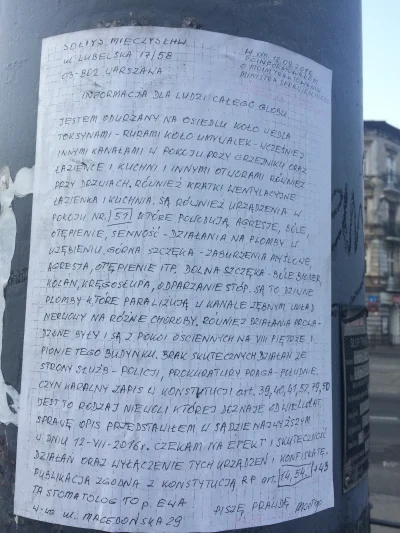 SOŁTYS MIECZYSŁAW
ul. LUBELSKA 17/58
03-802 WARSZAWA
INFORMACJA DLA LUDZI CAŁEGO GLOBU
JESTEM ODURZANY NA OSIEDLU KOŁO WEDLA
TOKSYNAMI - RURAMI KOŁO UMYWALEK - WCZEŚNIEJ
INNYMI KANAŁAMI W POKOJU PRZY GRZEJNIKU ORAZ
ŁAZIENCE I KUCHNI I INNYMI OTWORAMI RÓWNIEŻ
PRZY DRZWIACH, RÓWNIEŻ KRATKI WENTYLACYJNE
ŁAZIENKA I KUCHNIA, SĄ RÓWNIEŻ URZĄDZENIA W
POKOJU NR. 57 KTÓRE POWODUJĄ AGRESJĘ, BÓLE,
OTĘPIENIE, SENNOŚĆ - DZIAŁANIA NA PLOMBY W
UZĘBIENIU GÓRNA SZCZĘKA - ZABURZENIA MYŚLOWE,
AGRESJA, OTĘPIENIE ITP. DOLNA SZCZĘKA - BÓLE BIODER,
KOLAN, KRĘGOSŁUPA, ODPARZANIE STÓP. SĄ TO DZIWNE
PLOMBY KTÓRE PARALIŻUJĄ W KANALE ZĘBNYM UKŁAD
NERWOWY NA RÓŻNE CHOROBY. RÓWNIEŻ DZIAŁANIA PROWA-
DZONE BYŁY I SĄ Z POKOI OŚCIENNYCH NA VIII PIĘTRZE I
PIONIE TEGO BUDYNKU. BRAK SKUTECZNYCH DZIAŁAŃ ZE
STRONY SŁUŻB - POLICJI, PROKURATURY PRAGA-POŁUDNIE.
CZYN KARALNY ZAPIS W KONSTYTUCJI art. 39, 40, 41, 52, 79, 50
JEST TO RODZAJ NIEWOLI KTÓREJ DOZNAJĘ OD WIELU LAT.
SPRAWĘ OPIS PRZEDSTAWIŁEM W SĄDZIE NAJWYŻSZYM
W DNIU 12-VII-2016r. CZEKAM NA EFEKT I SKUTECZNOŚĆ
DZIAŁAŃ ORAZ WYŁĄCZENIE TYCH URZĄDZEŃ I KONFISKATĘ.
PUBLIKACJA ZGODNA Z KONSTYTUCJĄ R.P. art. 14, 54,
TA STOMATOLOG TO p. EWA
ul. MACEDOŃSKA 29
PISZĘ PRAWDĘ